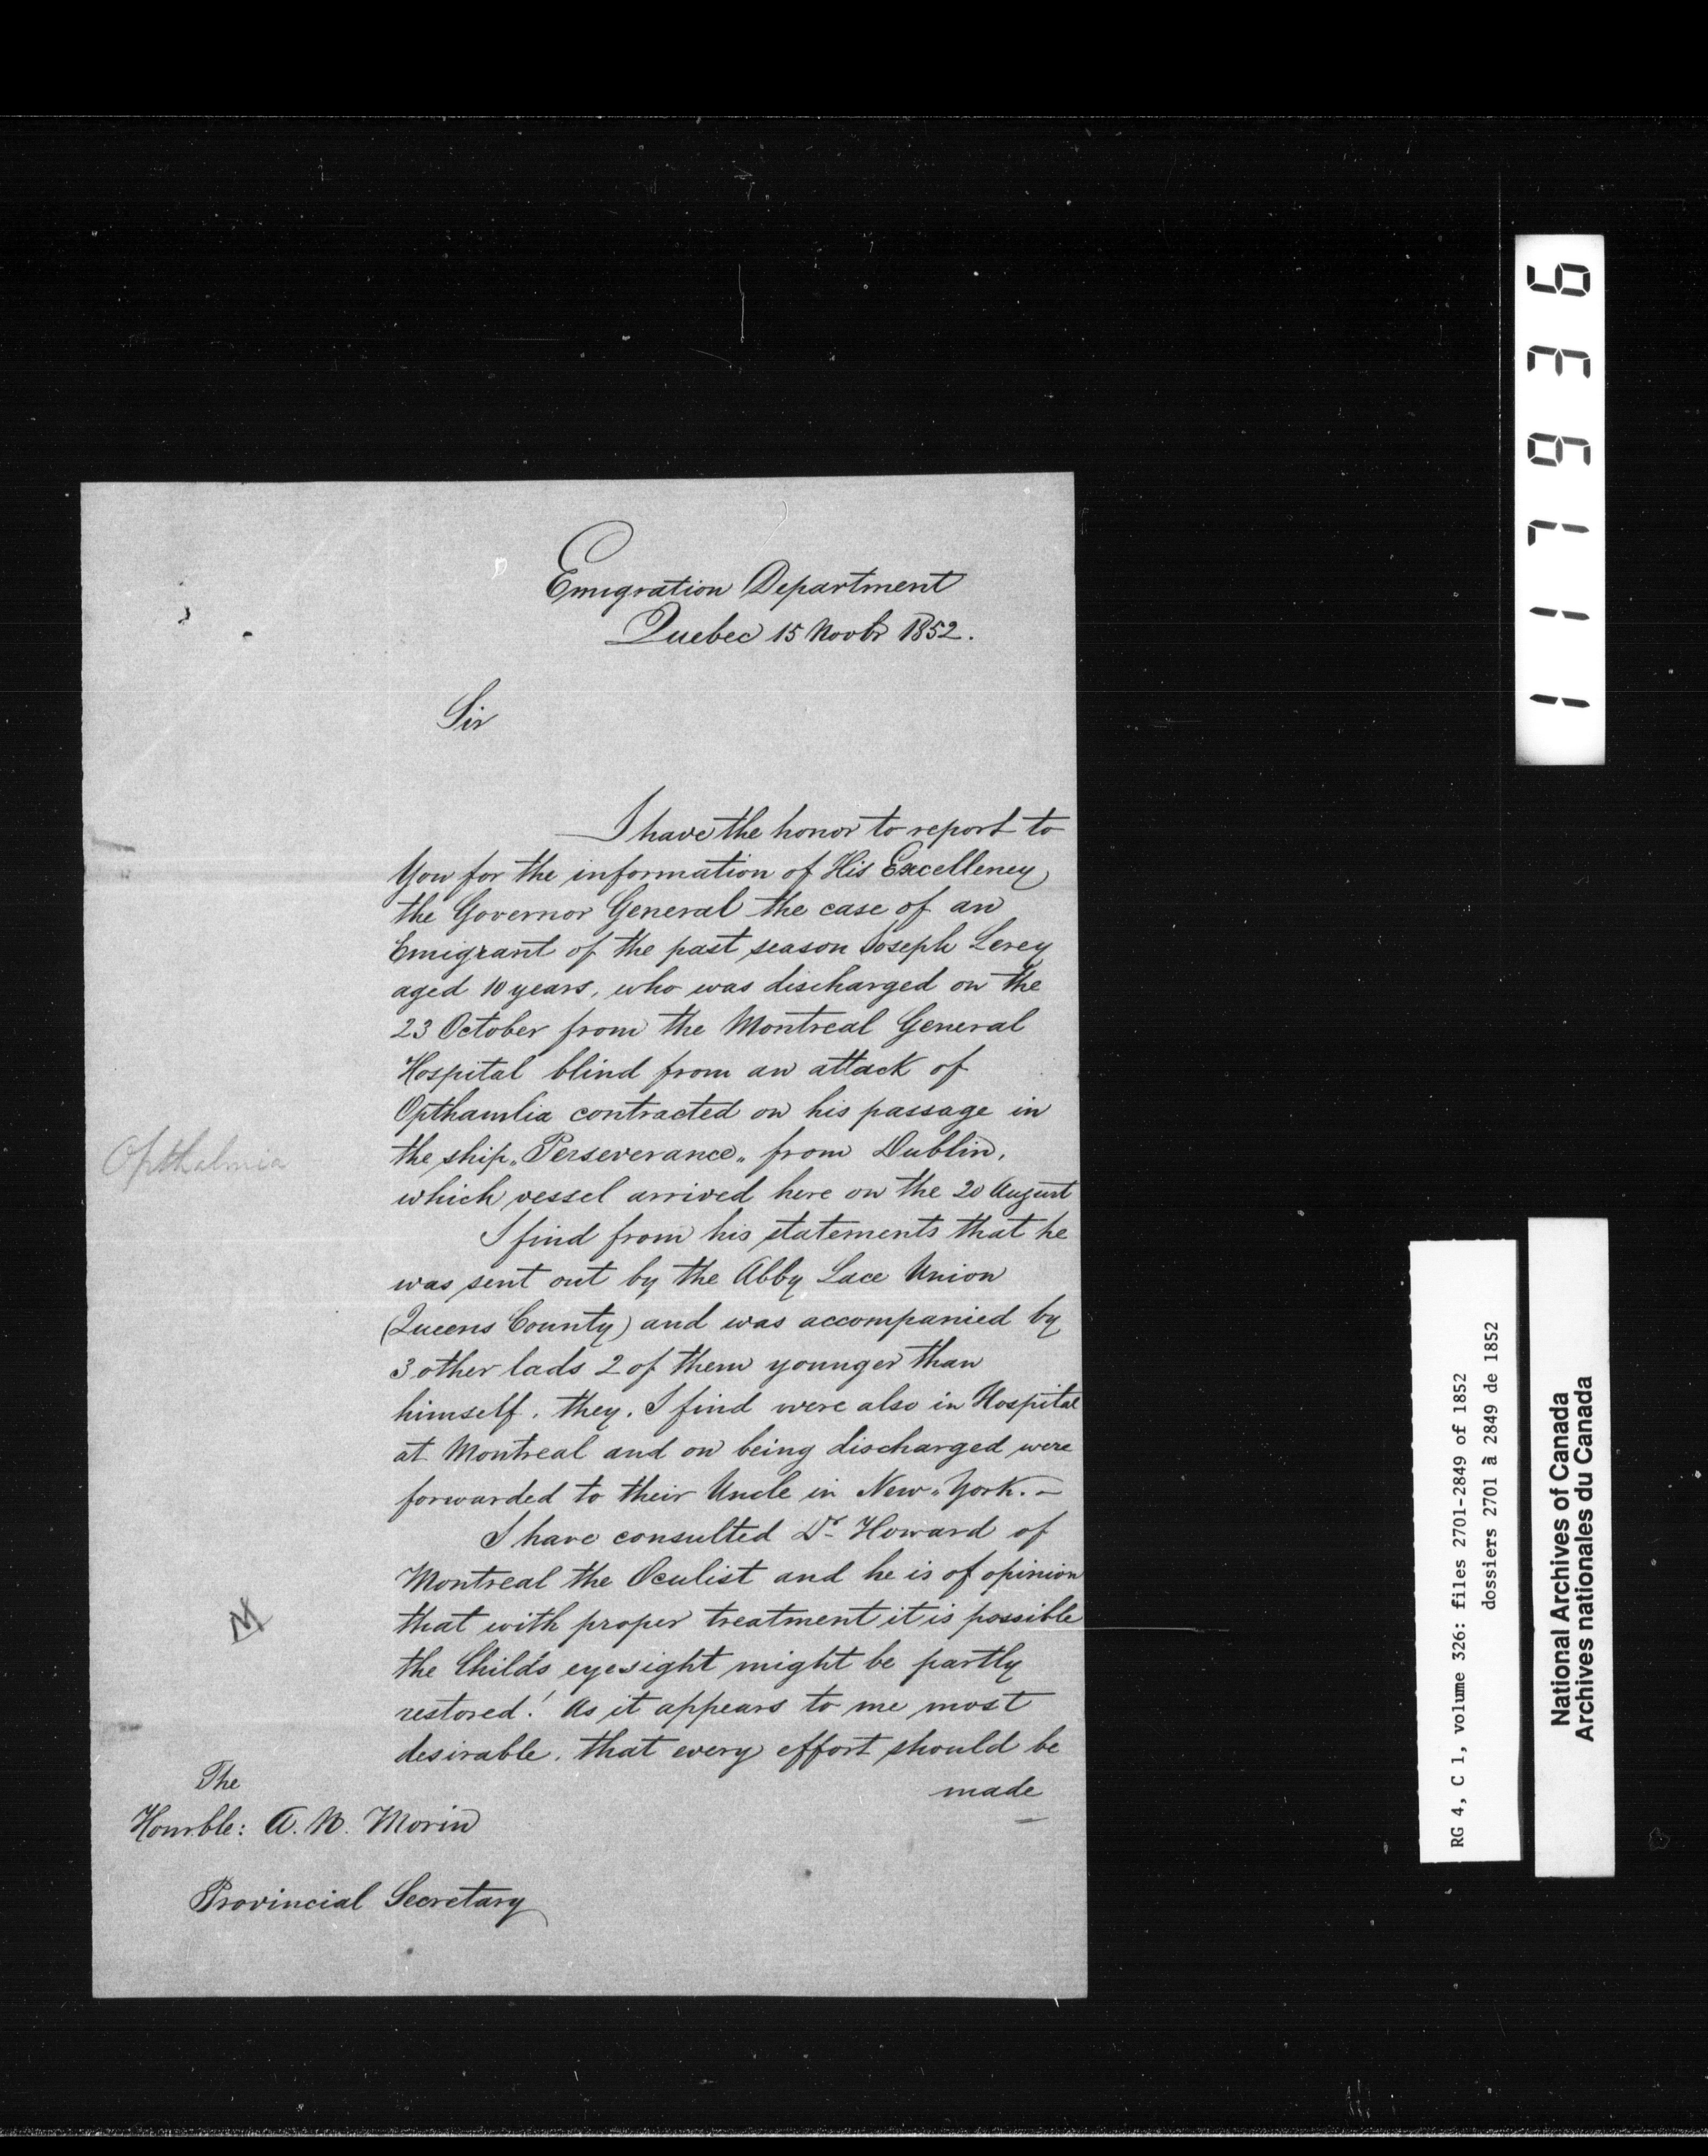 Emigration Department
Quebec 15 Novbr 1852.
Sir
I have the honor to report to
You for the information of His Excellency
the Governor General the case of an
Emigrant of the past season Joseph Lerey
aged 10 years, who was discharged on the
23 October from the Montreal General
Hospital blind from an attack of
Opthamlia contracted on his passage in
the ship „Perseverance„ from Dublin,
which vessel arrived here on the 20 August
I find from his statements that he
was sent out by the Abby Lace Union
(Queens County) and was accompanied by
3 other lads 2 of them younger than
himself. they. I find were also in Hospital
at Montreal and on being discharged were
forwarded to their Uncle in New„York. —
I have consulted Dr Howard of
Montreal the Oculist and he is of opinion
that with proper treatment it is possible
the Child's eyesight might be partly
restored! As it appears to me most
desirable. that every effort should be
made
Opthalmia
M
The
Honrble: A. N. Morin
Provincial Secretary
117936
RG 4, C 1, volume 326: files 2701-2849 of 1852
dossiers 2701 à 2849 de 1852
National Archives of Canada
Archives nationales du Canada